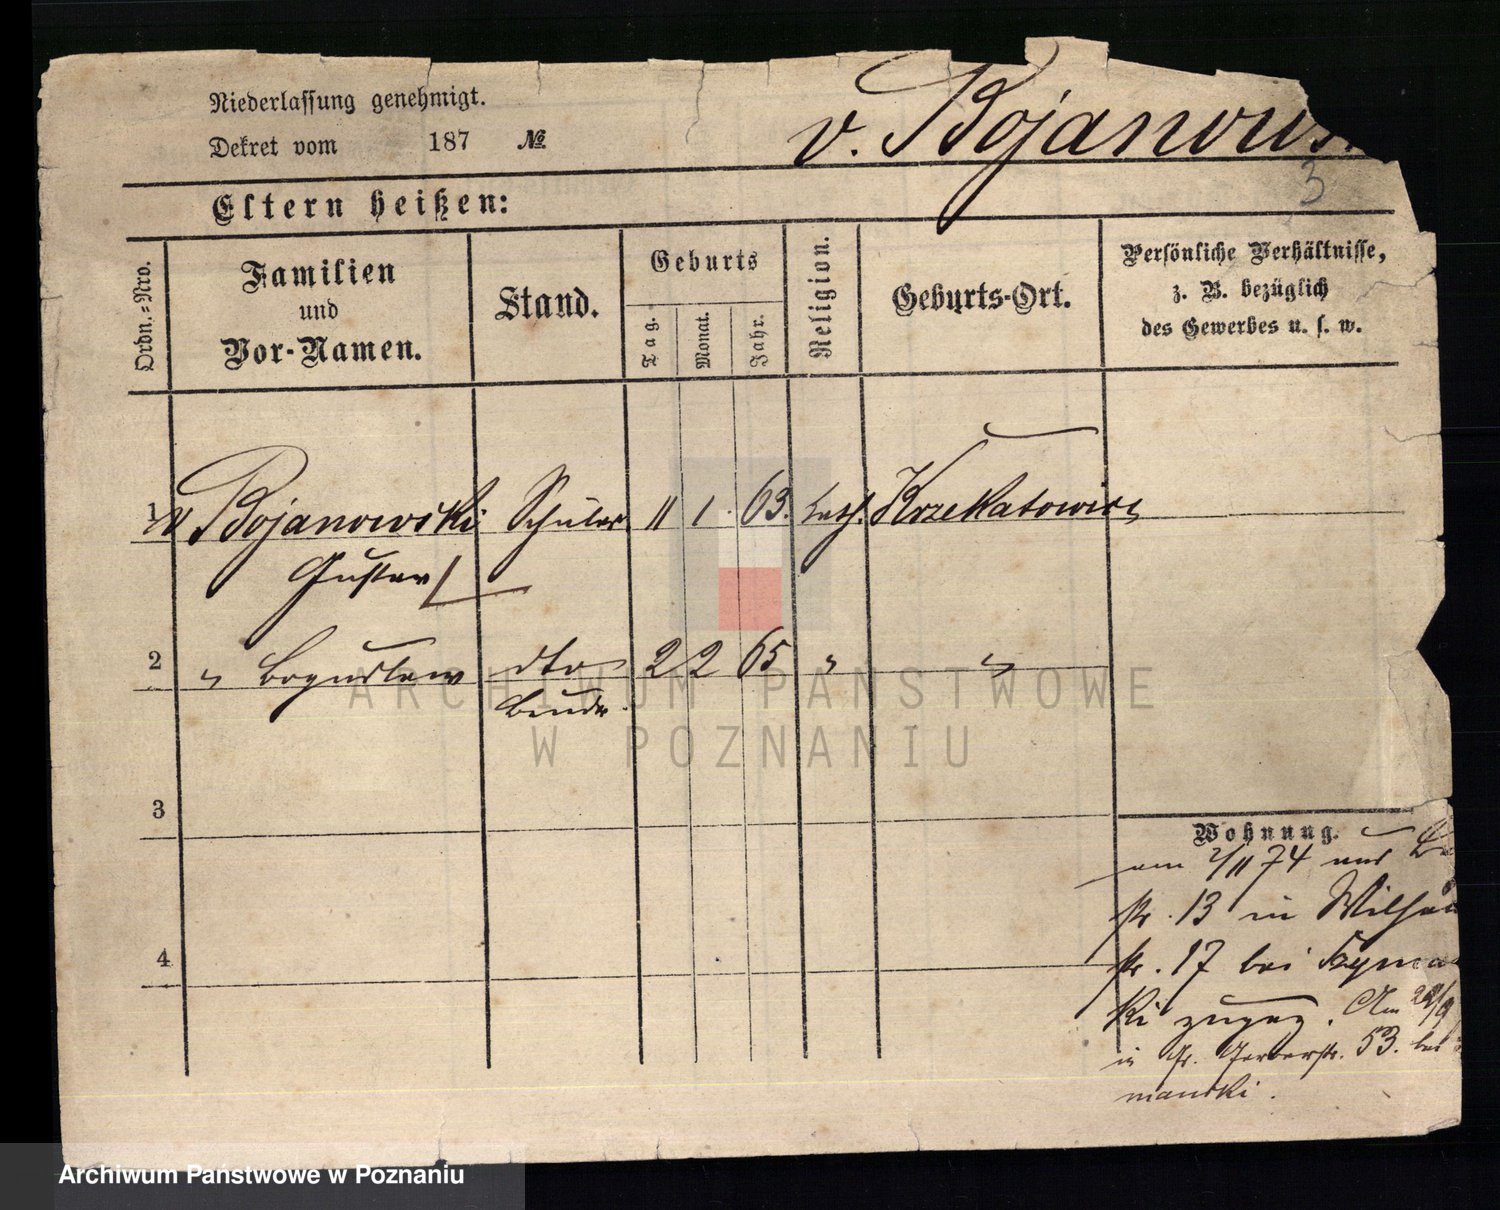 Niederlassung genehmigt.
Dekret vom 187 №
v. Bojanows
3
Eltern heißen:
Ordn.-Nro.
Familien
und
Vor-Namen.
Stand.
Geburts
Tag.
Monat.
Jahr.
Religion.
Geburts-Ort.
Persönliche Verhältnisse,
z. B. bezüglich
des Gewerbes u. s. w.
1 v Bojanowski Schüler 11 1 63. kath. Krzekatowice
Gustav
2 " Boguslaw dto 2 2 65 " "
Bruder
3
4
Wohnung.
am 2/11 74 aus
str. 13 in Wilhel
str. 17 bei Szyma
ki zugez. Am 29/9
in Gr. Gerberstr. 53. bei
manski.
ARCHIWUM PAŃSTWOWE
W POZNANIU
Archiwum Państwowe w Poznaniu